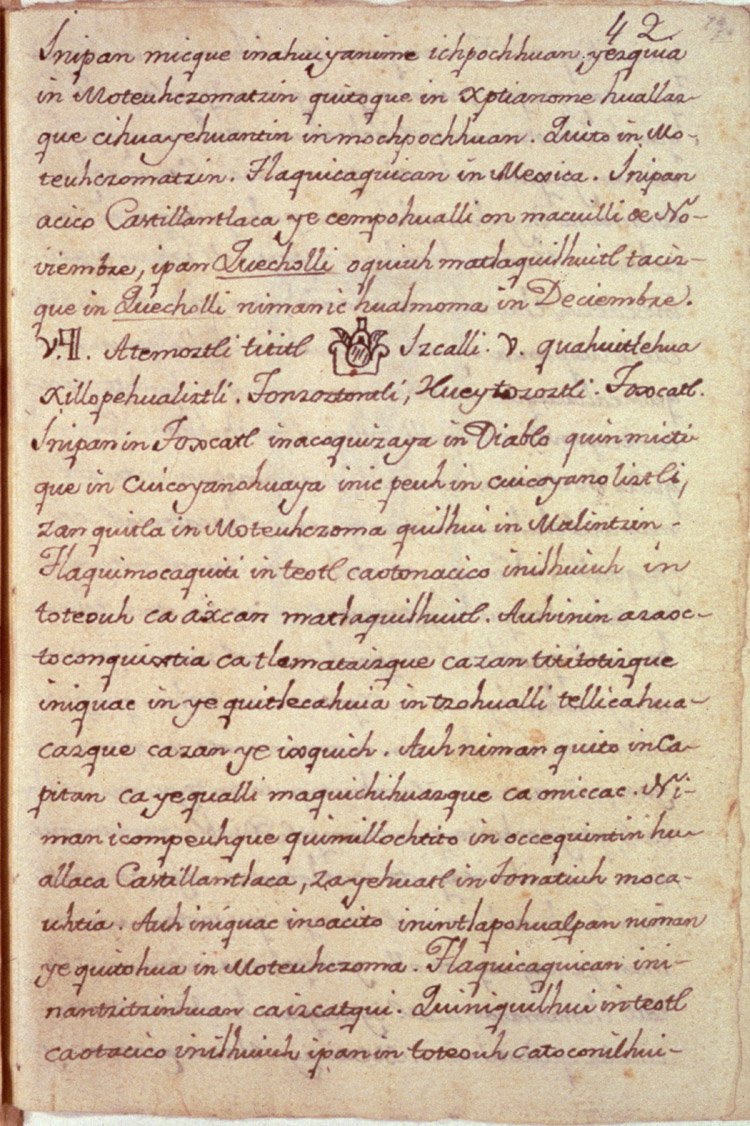 42
Inipan micque inahuiyanime ichpochhuan yezquia
in Moteuhczomatzin quitoque in xptianome huallaz-
que cihuayehuantin inmochpochhuan. Quito in Mo-
teuhczomatzin. Tlaquicaquican in Mexica. Inipan
acico Castillantlaca ye cempohualli on macuilli de No-
viembre, ipan Quecholli oquiuh matlaquilhuitl taciz-
que in Quecholli nimanic hualmoma in Deciembre.
Atemoztli tititl Izcalli. V. quahuitlehua
xillopehualiztli. Tonzoztontli, Hueytozoztli. Toxcatl.
Inipan in Toxcatl inacoquizaya in Diablo quinmicti-
que in cuicoyanohuaya inic peuh in cuicoyanoliztli,
zan quitla in Moteuhczoma quilhui in Malintzin.
Tlaquimocaquiti in teotl caotonacico inilhuiuh in
toteouh ca axcan matlaquilhuitl. Auh inin azaoc-
toconquixtia ca tlemataizque cazan tititotizque
iniquac in ye quitlecahuia in tzohualli tellicahua-
cazque cazan ye ixquich. Auh niman quito in Ca-
pitan ca yequalli maquichihuazque ca oniccac. Ni-
man icompeuhque quimillochtito in occequintin hu-
allaca Castillantlaca, zayehuatl in Tonatiuh moca-
uhtia. Auh iniquac inoacito inintlapohualpan niman
ye quitohua in Moteuhczoma. Tlaquicaquican ini-
nantzitzinhuan caizcatqui. Quiniquilhui in teotl
caotacico inilhuiuh ipan in toteouh catoconilhui-